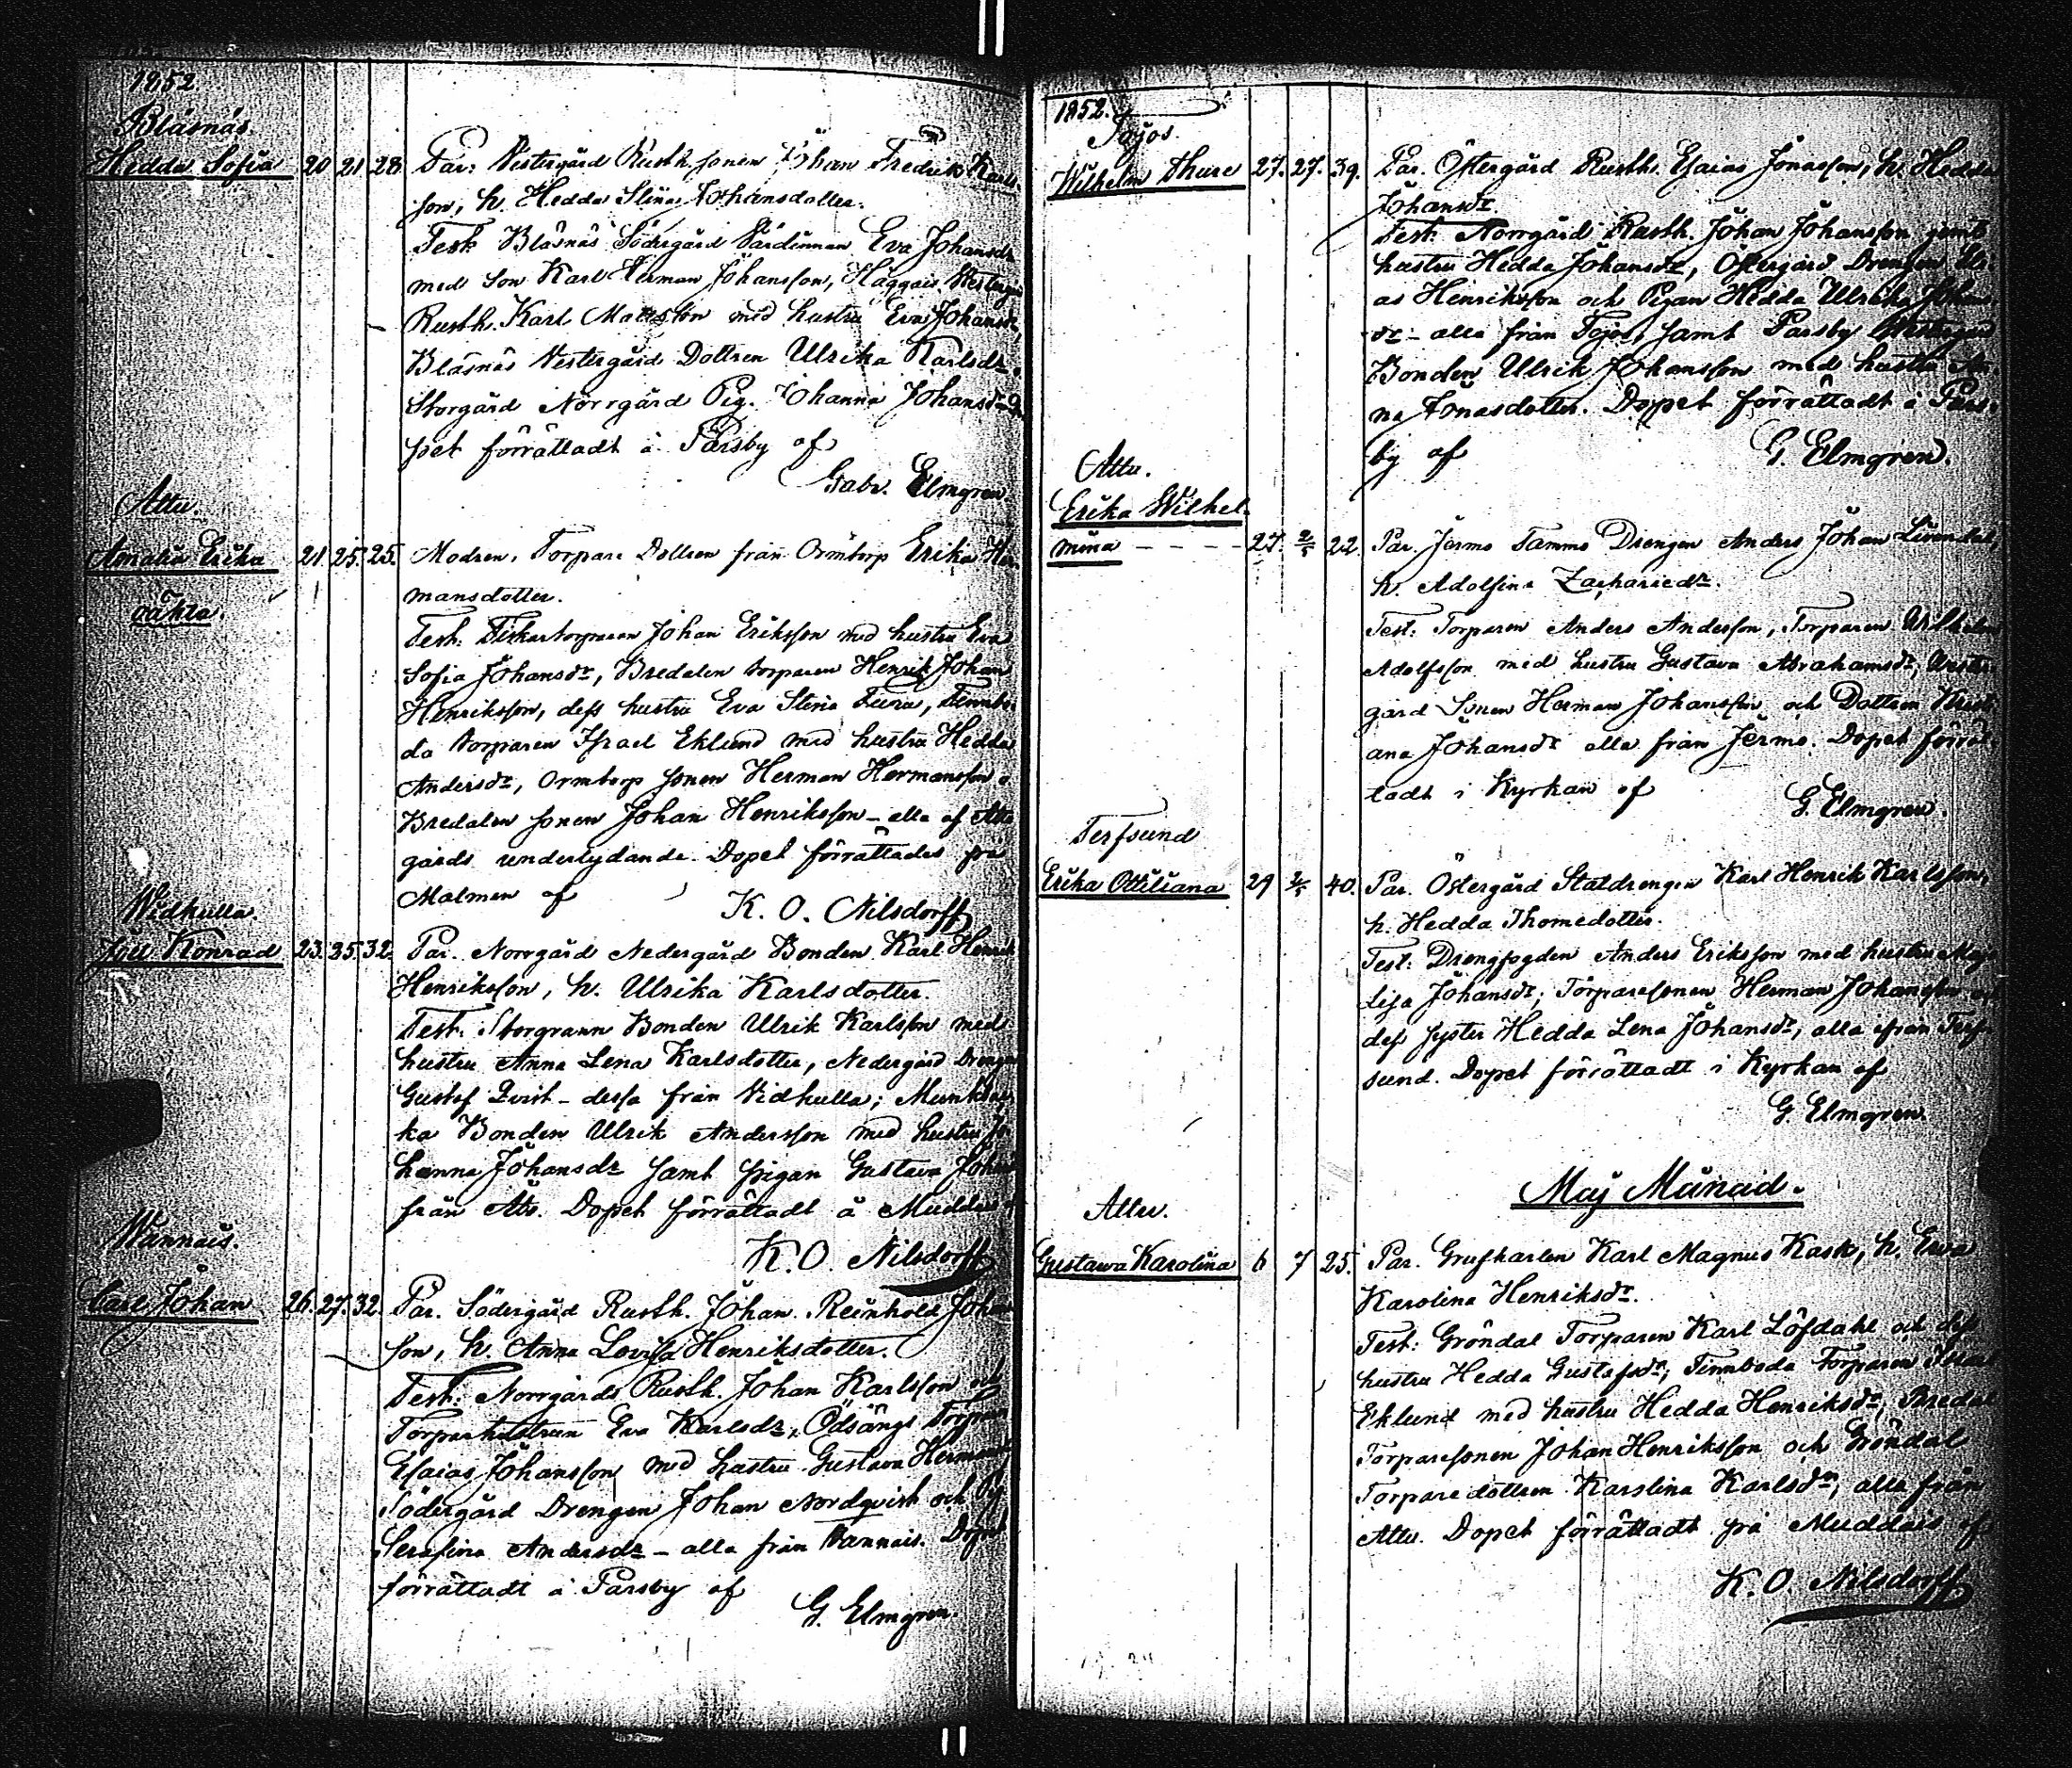 1852.
Bläsnäs.
Hedda Sofia 20 21 28. Par: Vestergård Rusth. sonen Johan Fredrik Karls-
son, h. Hedda Stina Johansdotter.
Test. Bläsnäs Södergård Värdinnan Eva Johansdr
med son Karl Herman Johansson, Haggais Vestergård
Rusth. Karl Mattsson med hustru Eva Johansdr,
Bläsnäs Vestergård Dottren Ulrika Karlsdr,
Storgård Norrgård Pig. Johanna Johansdr Do-
pet förrättadt å Parsby af
Gabr. Elmgren.
Attu.
Amalia Erika 21. 25. 25. Modren, Torpare Dottren från Ormtorp Erika Her-
oäkta. mansdotter.
Test. Fiskartorparen Johan Eriksson med hustru Eva
Sofia Johansdr, Bredalen torparen Henrik Johan
Henriksson, dess hustru Eva Stina, Tennbo-
da torparen Israel Eklund med hustru Hedda
Andersdr, Ormtorp sonen Herman Hermansson o
Bredalen sonen Johan Henriksson - alla af Attu
gårds underlydande. Dopet förrättades på
Malmen af K. O. Nilsdorff
Widhulla.
Joel Konrad 23. 25. 32. Par. Norrgård Nedergård Bonden Karl Henrik
Henriksson, h. Ulrika Karlsdotter.
Test. Storgrann Bonden Ulrik Karlsson med
hustru Anna Lena Karlsdotter, Nedergård Drengen
Gustaf Qvist - dessa från Vidhulla;
Bonden Ulrik Andersson med hustru Jo-
hanna Johansdr samt pigan Gustava
från Dopet förrättadt å Muddais af
K. O. Nilsdorff
Wannais.
Carl Johan 26. 27. 32. Par. Södergård Rusth. Johan Reinhold Johans-
son, h. Anna Lovisa Henriksdotter.
Test: Norrgårds Rusth. Johan Karlsson och
Torparhustrun Eva Karlsdr, Ödsängs Torparen
Esaias Johansson med hustru Gustava Hermansdr
Södergård Drengen Johan Nordqvist och Pig
Serafina Andersdr - alla från Vannais. Dopet
förrättadt å Parsby af
G. Elmgren.
1852.
Tojos.
Wilhelm Thure 27. 27. 39. Par. Östergård Rusth. Esaias Jonasson, h. Hedda
Johansdr
Test: Norrgård Rusth. Johan Johansson jemte
hustru Hedda Johansdr, Östergård Drengen Eli-
as Henriksson och Pigan Hedda Ulrika Johans-
dr - alla från Tojos, samt Parsby Westergård
Bonden Ulrik Johansson med hustru An-
na Jonasdotter. Dopet förrättadt å Pars-
by af G. Elmgren.
Attu.
Erika Wilhel-
mina - - - - 27. 2/5 22. Par. Jermo Tammo Drengen Anders Johan
h. Adolfina Zachariedr.
Test: Torparen Anders Andersson, Torparen Wilhelm
Adolfsson med hustru Gustava Abrahamsdr, Wester-
gård Sonen Herman Johansson och Dottren Kristi-
ana Johansdr alla från Jermo. Dopet förrät-
tadt i Kyrkan af
G. Elmgren.
Terfsund
Erika Ottiliana 29 2/5 40. Par. Östergård Staldrengen Karl Henrik Karlsson,
h. Hedda Thomedotter.
Test: Drengfogden Anders Eriksson med hustru Maja
Lisa Johansdr, Torparesonen Herman Johansson och
dess syster Hedda Lena Johansdr, alla ifrån Terf-
sund. Dopet förrättadt i Kyrkan af
G. Elmgren.
Maj Månad.
Attu.
Gustawa Karolina 6 7 25. Par. Grufkarlen Karl Magnus Kask, h. Ewa
Karolina Henriksdr.
Test: Gröndal Torparen Karl Löfdahl och dess
hustru Hedda Gustafsdr, Tennboda Torparen Israel
Eklund med hustru Hedda Henriksdr, Bredal
Torparesonen Johan Henriksson och Gröndal
Torparedottren Karolina Karlsdr, alla från
Attu. Dopet förrättadt på Muddais af
K. O. Nilsdorff